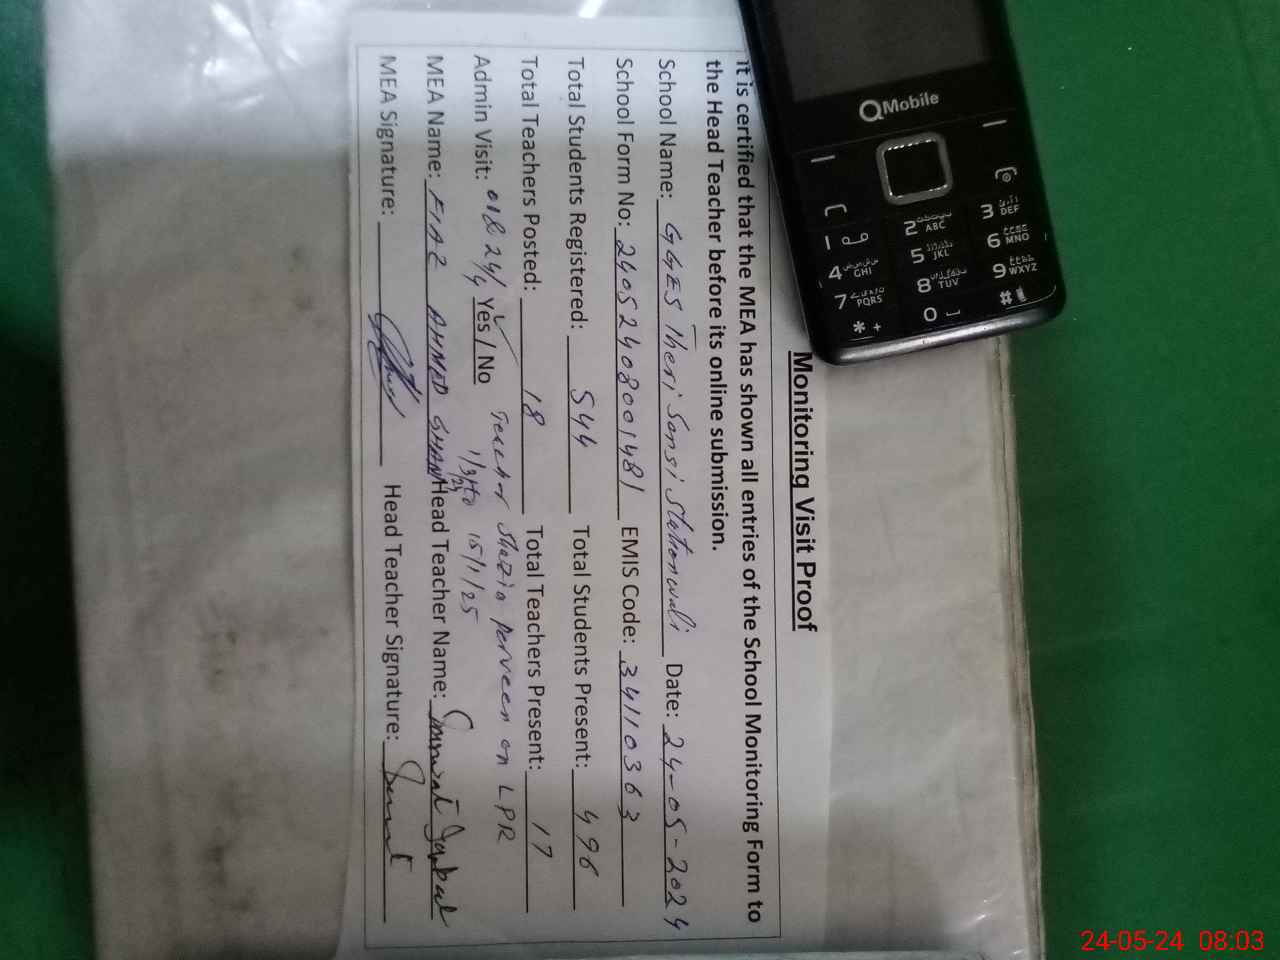 Monitoring Visit Proof
It is certified that the MEA has shown all entries of the School Monitoring Form to
the Head Teacher before its online submission.
School Name: GGES Theri Sansi Stationwali Date: 24-05-2024
School Form No: 240524080001481 EMIS Code: 34110363
Total Students Registered: 544 Total Students Present: 496
Total Teachers Posted: 18 Total Teachers Present: 17
Teacher Shazia Parveen on LPR
Admin Visit: Yes / No 1/3/24 to 15/1/25
MEA Name: FIAZ AHMED Head Teacher Name:
MEA Signature: Head Teacher Signature:
QMobile
1
2 ABC
3 DEF
4 GHI
5 JKL
6 MNO
7 PQRS
8 TUV
9 WXYZ
* +
0
#
24-05-24 08:03